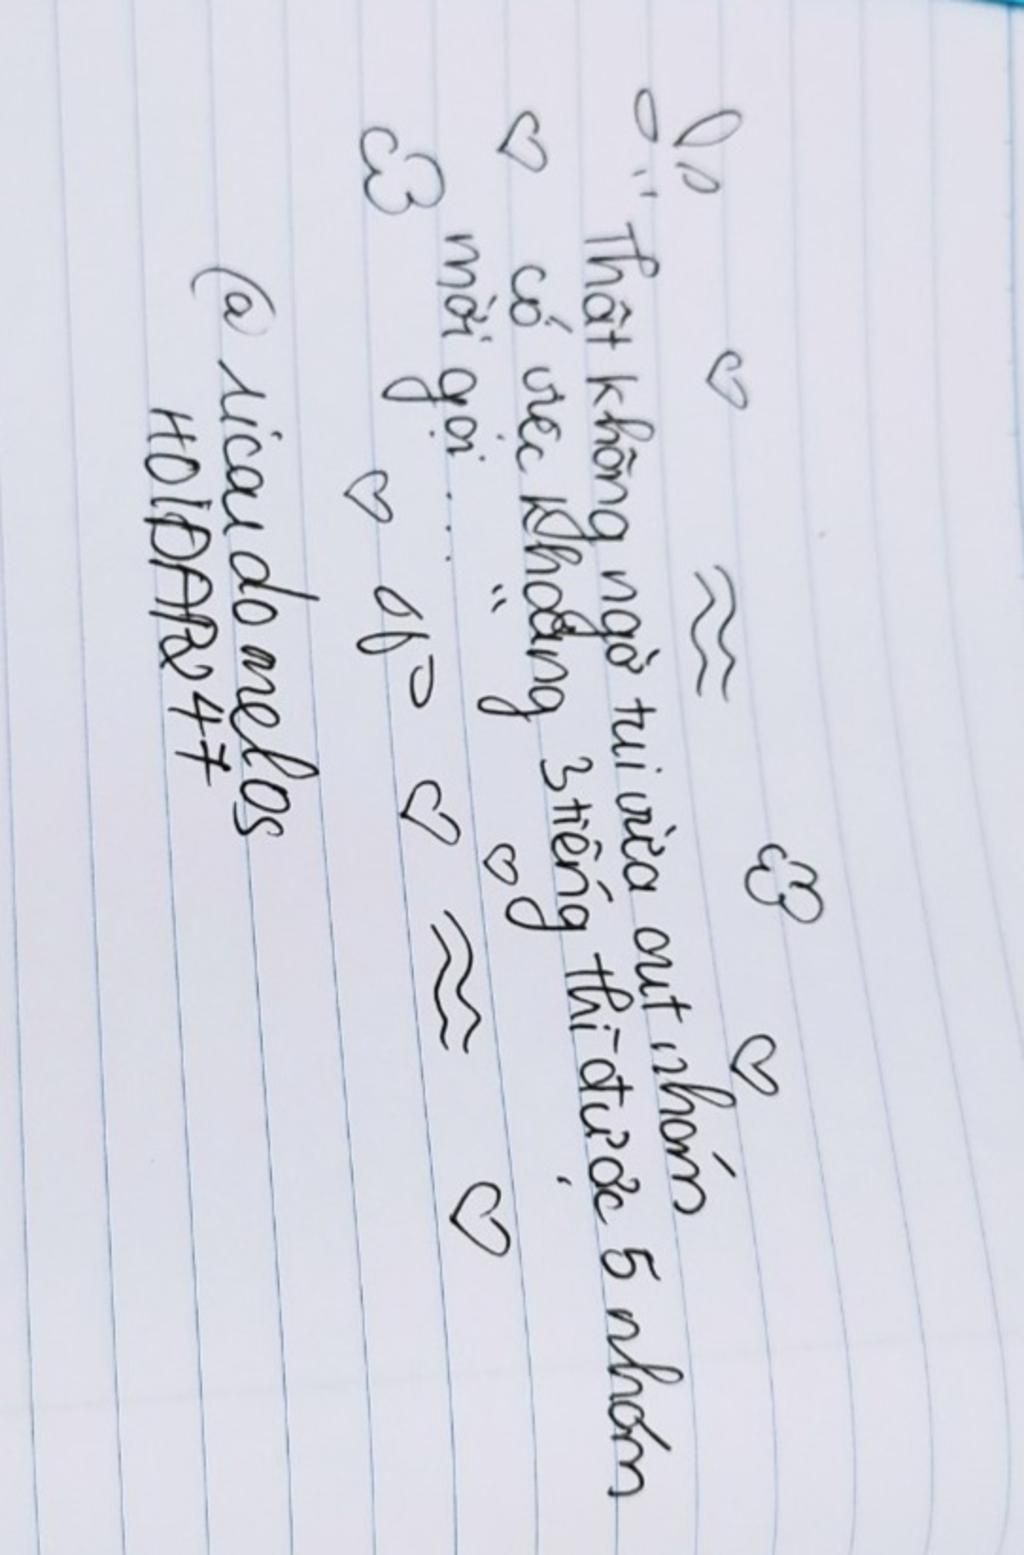 " Thật không ngờ tui vừa out nhóm
có việc khoảng 3 tiếng thì được 5 nhóm
mời gọi .... "
@ ricardo melos
HOIDAP247